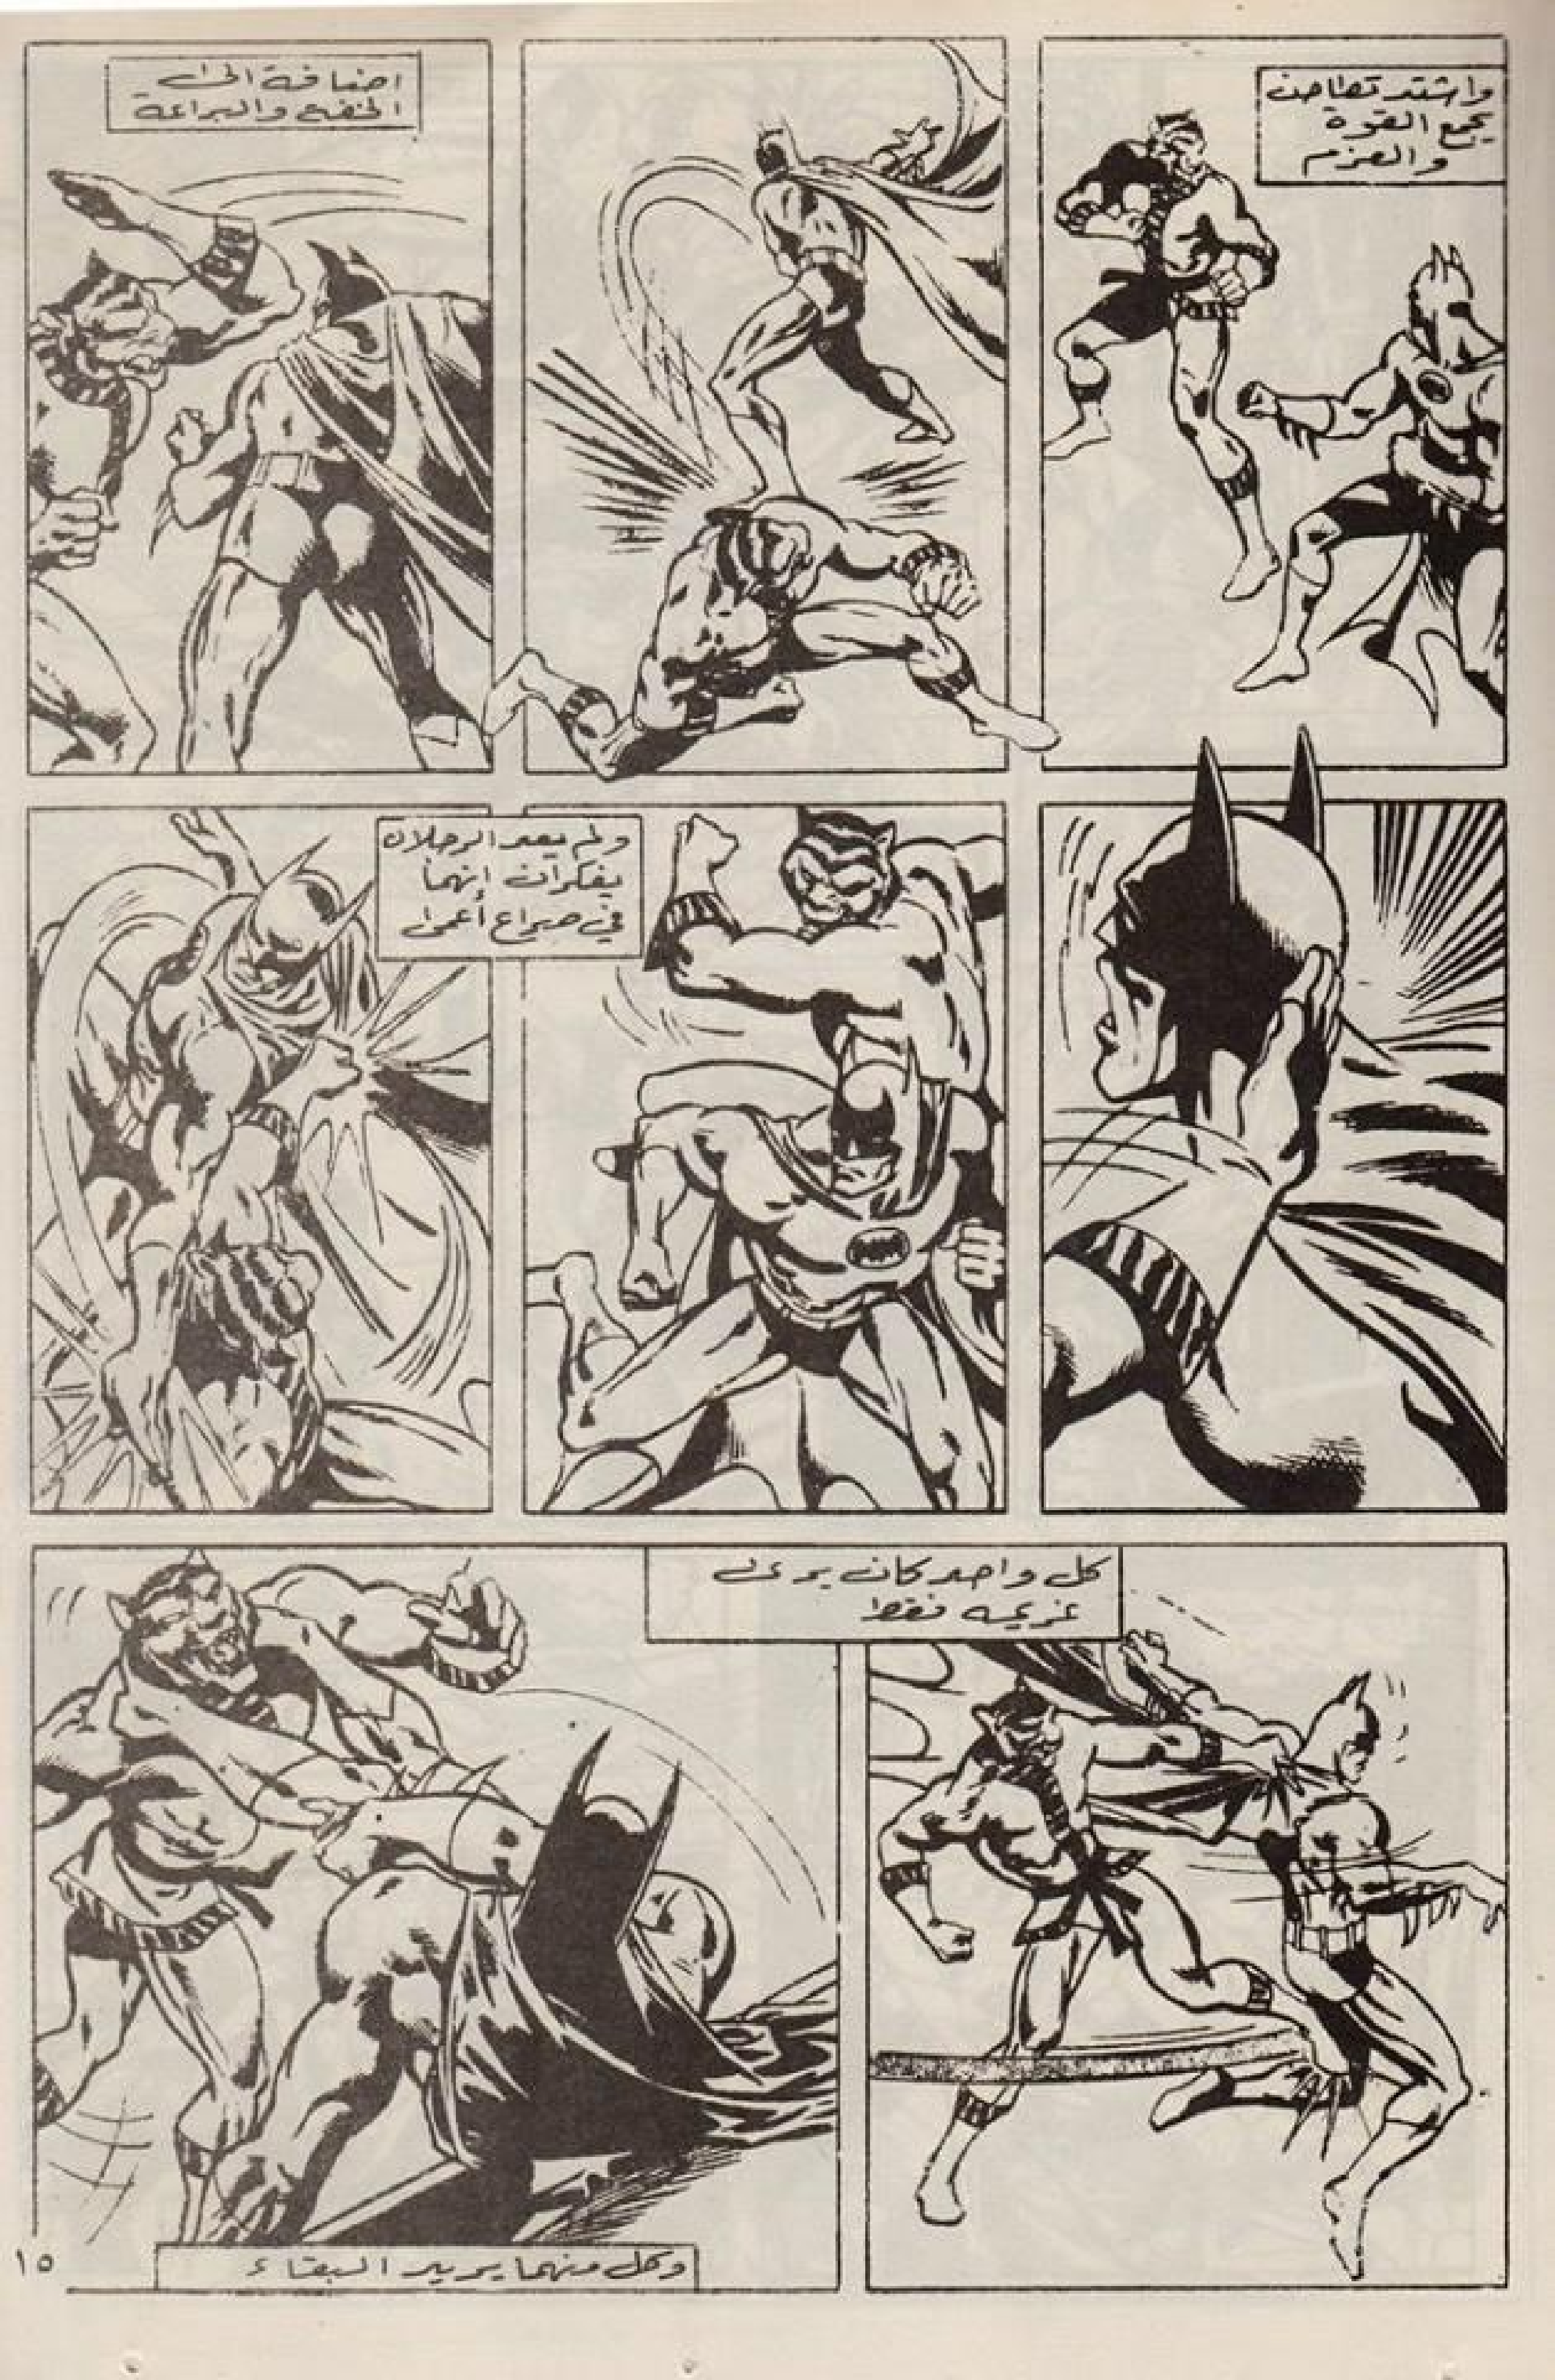 واشتد تطاحن
يجمع القوة
والعزم
اضافة الى
الخفة والبراعة
ولم يعد الرجلان
يفكران إنهما
في صراع أعمى
كل واحد كان يرى
غريمه فقط
وكل منهما يريد البقاء
١٥